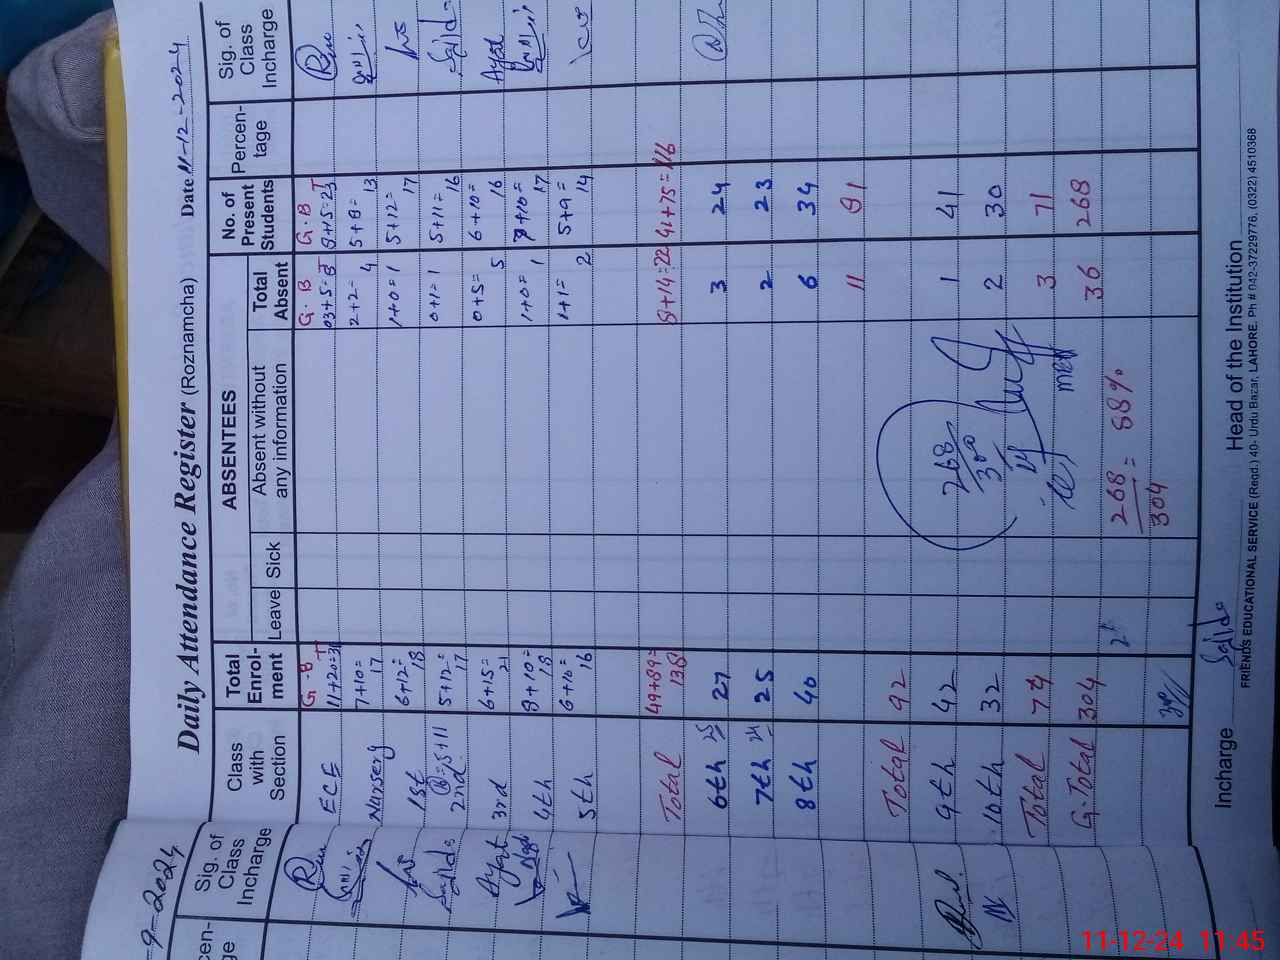 Daily Attendance Register (Roznamcha) Date 11-12-2024
Class with Section | Total Enrol-ment | ABSENTEES | No. of Present Students | Percen-tage | Sig. of Class Incharge
Leave | Sick | Absent without any information | Total Absent
G - B T | G. B T | G. B T
ECE 11+20=31 03+5=8 8+15=23
Nursery 7+10= 17 2+2= 4 5+8= 13
1st 6+12= 18 1+0=1 5+12= 17
2nd 5+12= 17 0+1= 1 5+11= 16
3rd 6+15= 21 0+5= 5 6+10= 16 Ayat
4th 8+10= 18 1+0= 1 7+10= 17
5th 6+10= 16 1+1= 2 5+9= 14
Total 49+89= 138 8+14=22 41+75=116
6th 27 3 24
7th 25 2 23
8th 40 6 34
Total 92 11 81
9th 42 1 41
10th 32 2 30
Total 74 3 71
G.Total 304 36 268
268
300
268 = 88%
304
Incharge Head of the Institution
FRIENDS EDUCATIONAL SERVICE (Regd.) 40- Urdu Bazar, LAHORE. Ph # 042-37229776, (0322) 4510368
9-2024
Sig. of Class Incharge
11-12-24 11:45